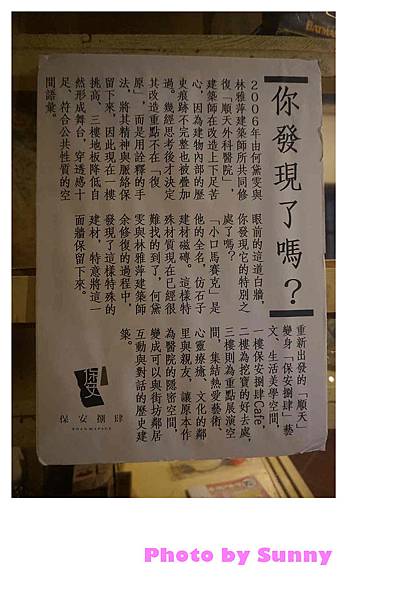 你發現了嗎？
2006年由何黛雯與
林雅萍建築師所共同修
復「順天外科醫院」，
建築師在改造上下足苦
心，因為建物內部的歷
史痕跡不完整也被疊加
過。幾經思考後才決定
其改造重點不在「復
原」，而是用詮釋的手
法，將其精神與脈絡保
留下來，因此現在一樓
挑高、三樓地板降低自
然形成舞台，穿透感十
足、符合公共性質的空
間語彙。
眼前的這道白牆，
你發現它的特別之
處了嗎？
「小口馬賽克」是
他的全名，仿石子
建材磁磚。這樣特
殊材質現在已經很
難找的到了，何黛
雯與林雅萍建築師
余修復的過程中，
發現了這樣特殊的
建材，特意將這一
面牆保留下來。
重新出發的「順天」
變身「保安捌肆」藝
文、生活美學空間，
一樓保安捌肆Cafe、
二樓為挖寶的好去處，
三樓則為重點展演空
間，集結熱愛藝術、
心靈療癒、文化的鄰
里與親友，讓原本作
為醫院的隱密空間，
變成可以與街坊鄰居
互動與對話的歷史建
築。
保安
保安捌肆
Photo by Sunny